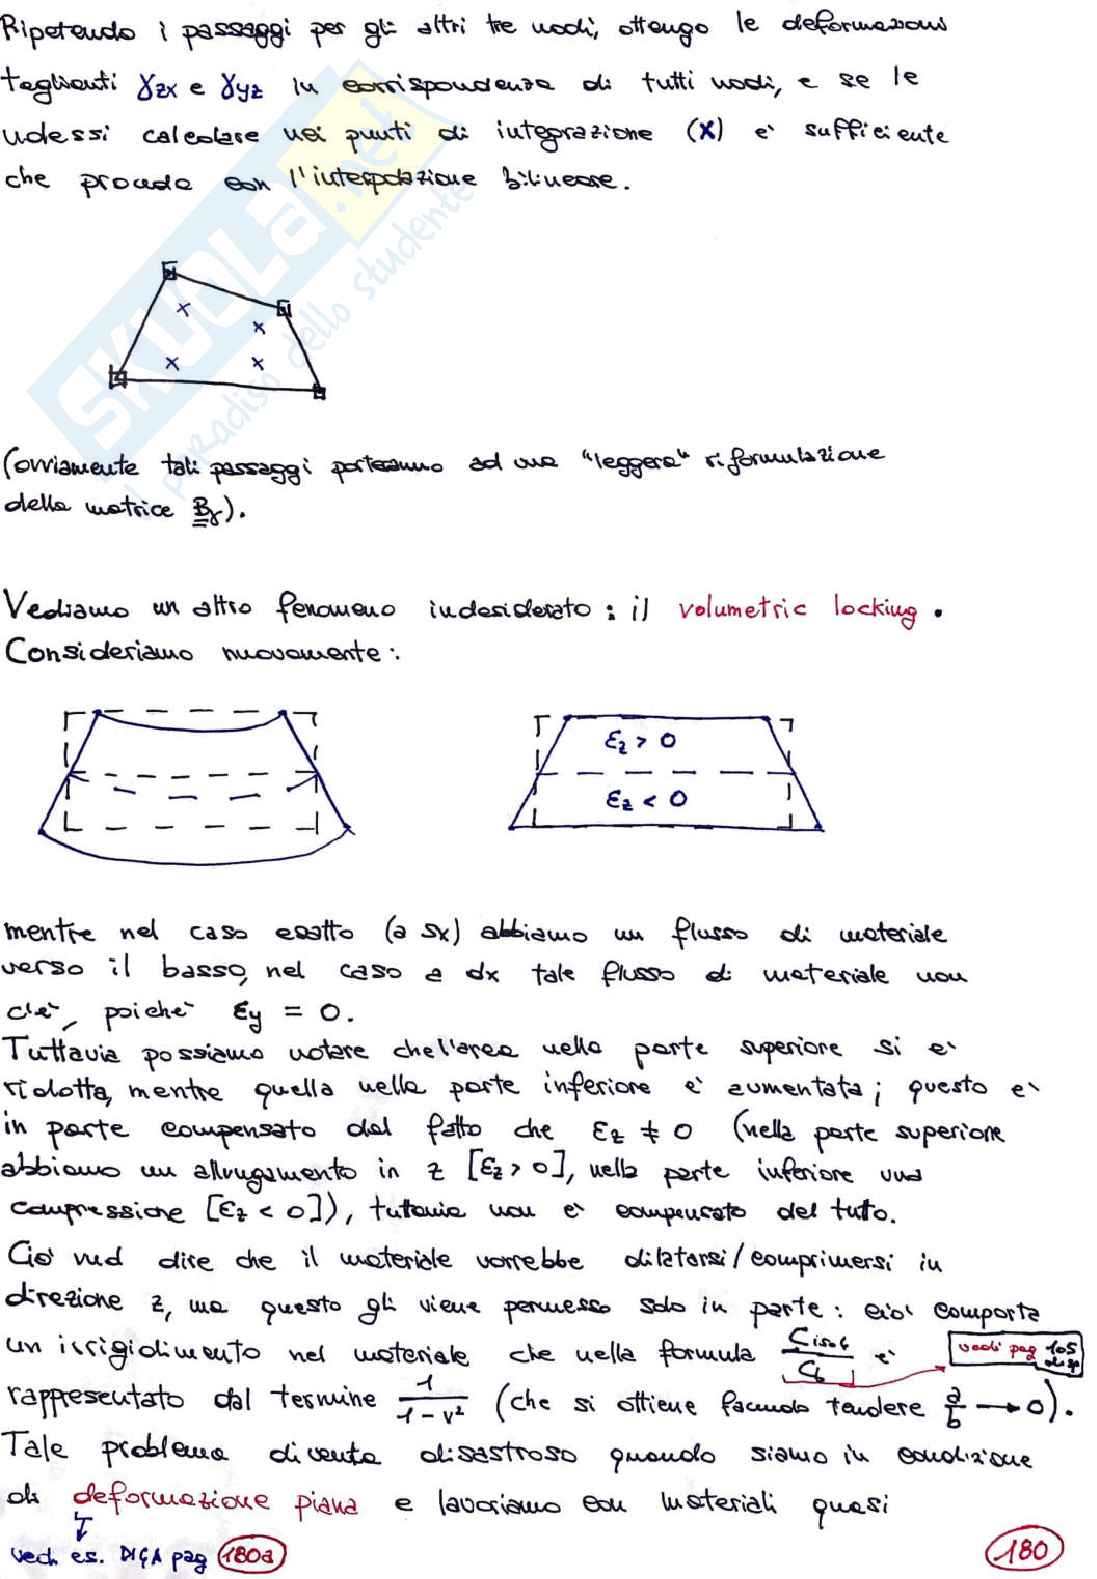 Ripetendo i passaggi per gli altri tre nodi, ottengo le deformazioni
taglianti γzx e γyz in corrispondenza di tutti nodi, e se le
volessi calcolare nei punti di integrazione (x) e' sufficiente
che proceda con l'interpolazione bilineare.
SKUOLA.net
il paradiso dello studente
x
x
x
x
(ovviamente tali passaggi porteranno ad una "leggera" riformulazione
della matrice Bγ).
Vediamo un altro fenomeno indesiderato: il volumetric locking.
Consideriamo nuovamente:
εz > 0
εz < 0
mentre nel caso esatto (a sx) abbiamo un flusso di materiale
verso il basso, nel caso a dx tale flusso di materiale non
c'e', poiche' εy = 0.
Tuttavia possiamo notare che l'area nella parte superiore si e'
ridotta, mentre quella nella parte inferiore e' aumentata; questo e'
in parte compensato dal fatto che εz ≠ 0 (nella parte superiore
abbiamo un allungamento in z [εz > 0], nella parte inferiore una
compressione [εz < 0]), tuttavia non e' compensato del tuto.
Cio' vuol dire che il materiale vorrebbe dilatarsi/comprimersi in
direzione z, ma questo gli viene permesso solo in parte: cio' comporta
un irrigidimento nel materiale che nella formula Ciso4/Cb e' vedi pag 105 disp
rappresentato dal termine 1/1-ν² (che si ottiene facendo tendere a/b → 0).
Tale problema diventa disastroso quando siamo in condizione
di deformazione piana e lavoriamo con materiali quasi
vedi es. DIGA pag 180a
180